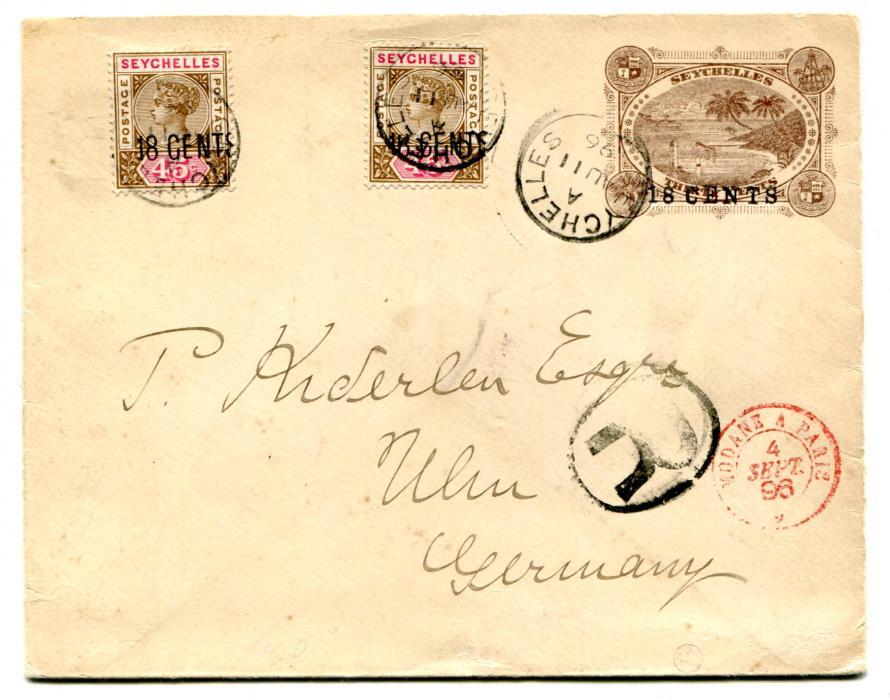 SEYCHELLES
POSTAGE POSTAGE
18 CENTS
45c
SEYCHELLES
POSTAGE POSTAGE
18 CENTS
SEYCHELLES
18 CENTS
SEYCHELLES
A
11
96
P. Kiderlen Esqre
Ulm
Germany
R
MODANE A PARIS
4
SEPT.
96